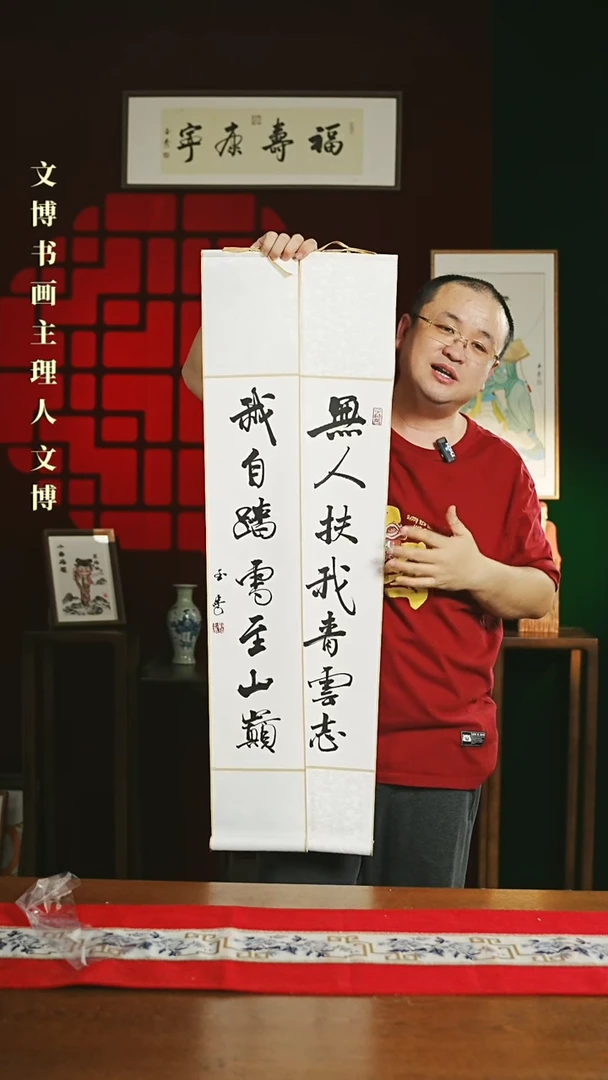 福壽康寧
文博书画主理人文博
無人扶我青雲志
我自踏雪至山巔